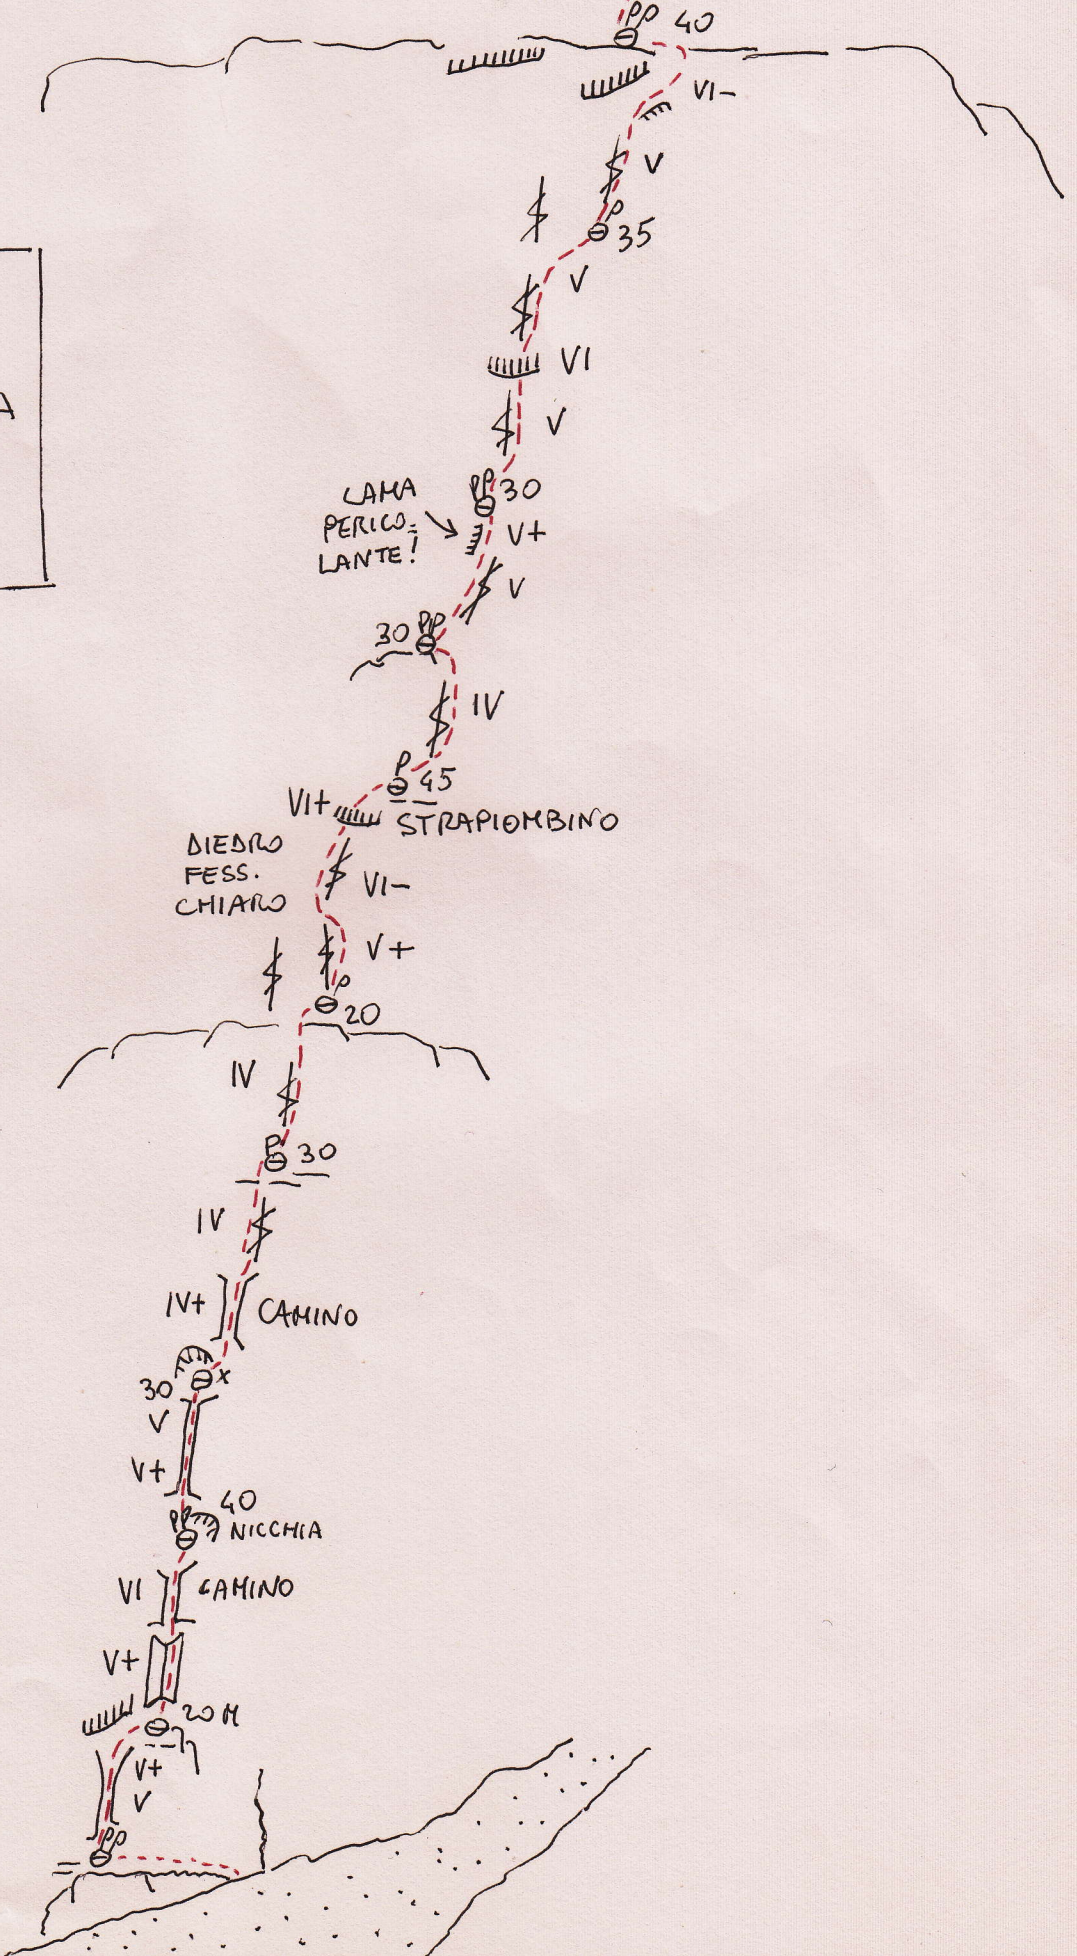 PP 40
VI-
V
P
35
V
VI
V
PP 30
LAMA
PERICO=
LANTE!
V+
V
30 PP
IV
P
45
VI+
STRAPIOMBINO
DIEDRO
FESS.
CHIARO
VI-
V+
P
20
IV
P 30
IV
IV+ CAMINO
x
30
V
V+
40
PP NICCHIA
VI CAMINO
V+
20 M
V+
V
PP